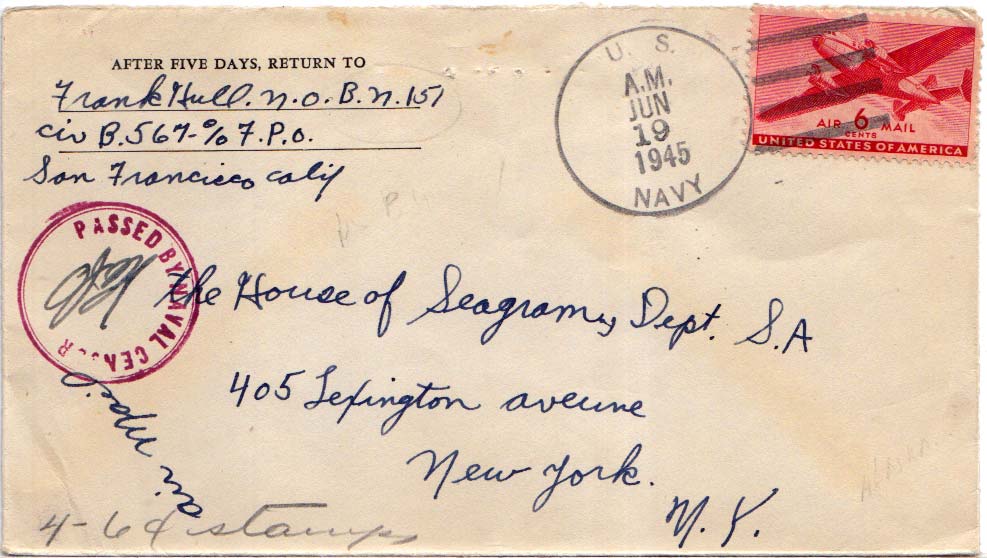 AFTER FIVE DAYS, RETURN TO
Frank Hull. N.O.B.N. 151
civ B. 567-% F.P.O.
San Francisco Calif
U. S.
A.M.
JUN
19
1945
NAVY
AIR 6 MAIL
CENTS
UNITED STATES OF AMERICA
PASSED BY NAVAL CENSOR
the House of Seagrams, Dept. S.A
405 Lexington aveune
New York.
N. Y.
air mail
4-6¢ stamps
ALASKA